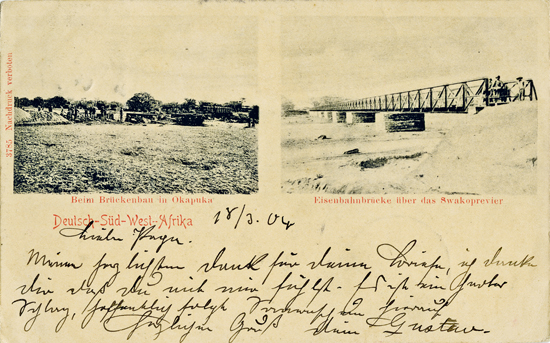 3785 Nachdruck verboten
Beim Brückenbau in Okapuka
Eisenbahnbrücke über das Swakoprevier
Deutsch-Süd-West-Afrika
18/3. 04
Liebe
Meinen herzlichsten Dank für deine Briefe, ich danke
dir daß du mit mir fühlst. Es ist ein harter
Schlag, hoffentlich folgt
Herzlichen Gruß dein Gustav.